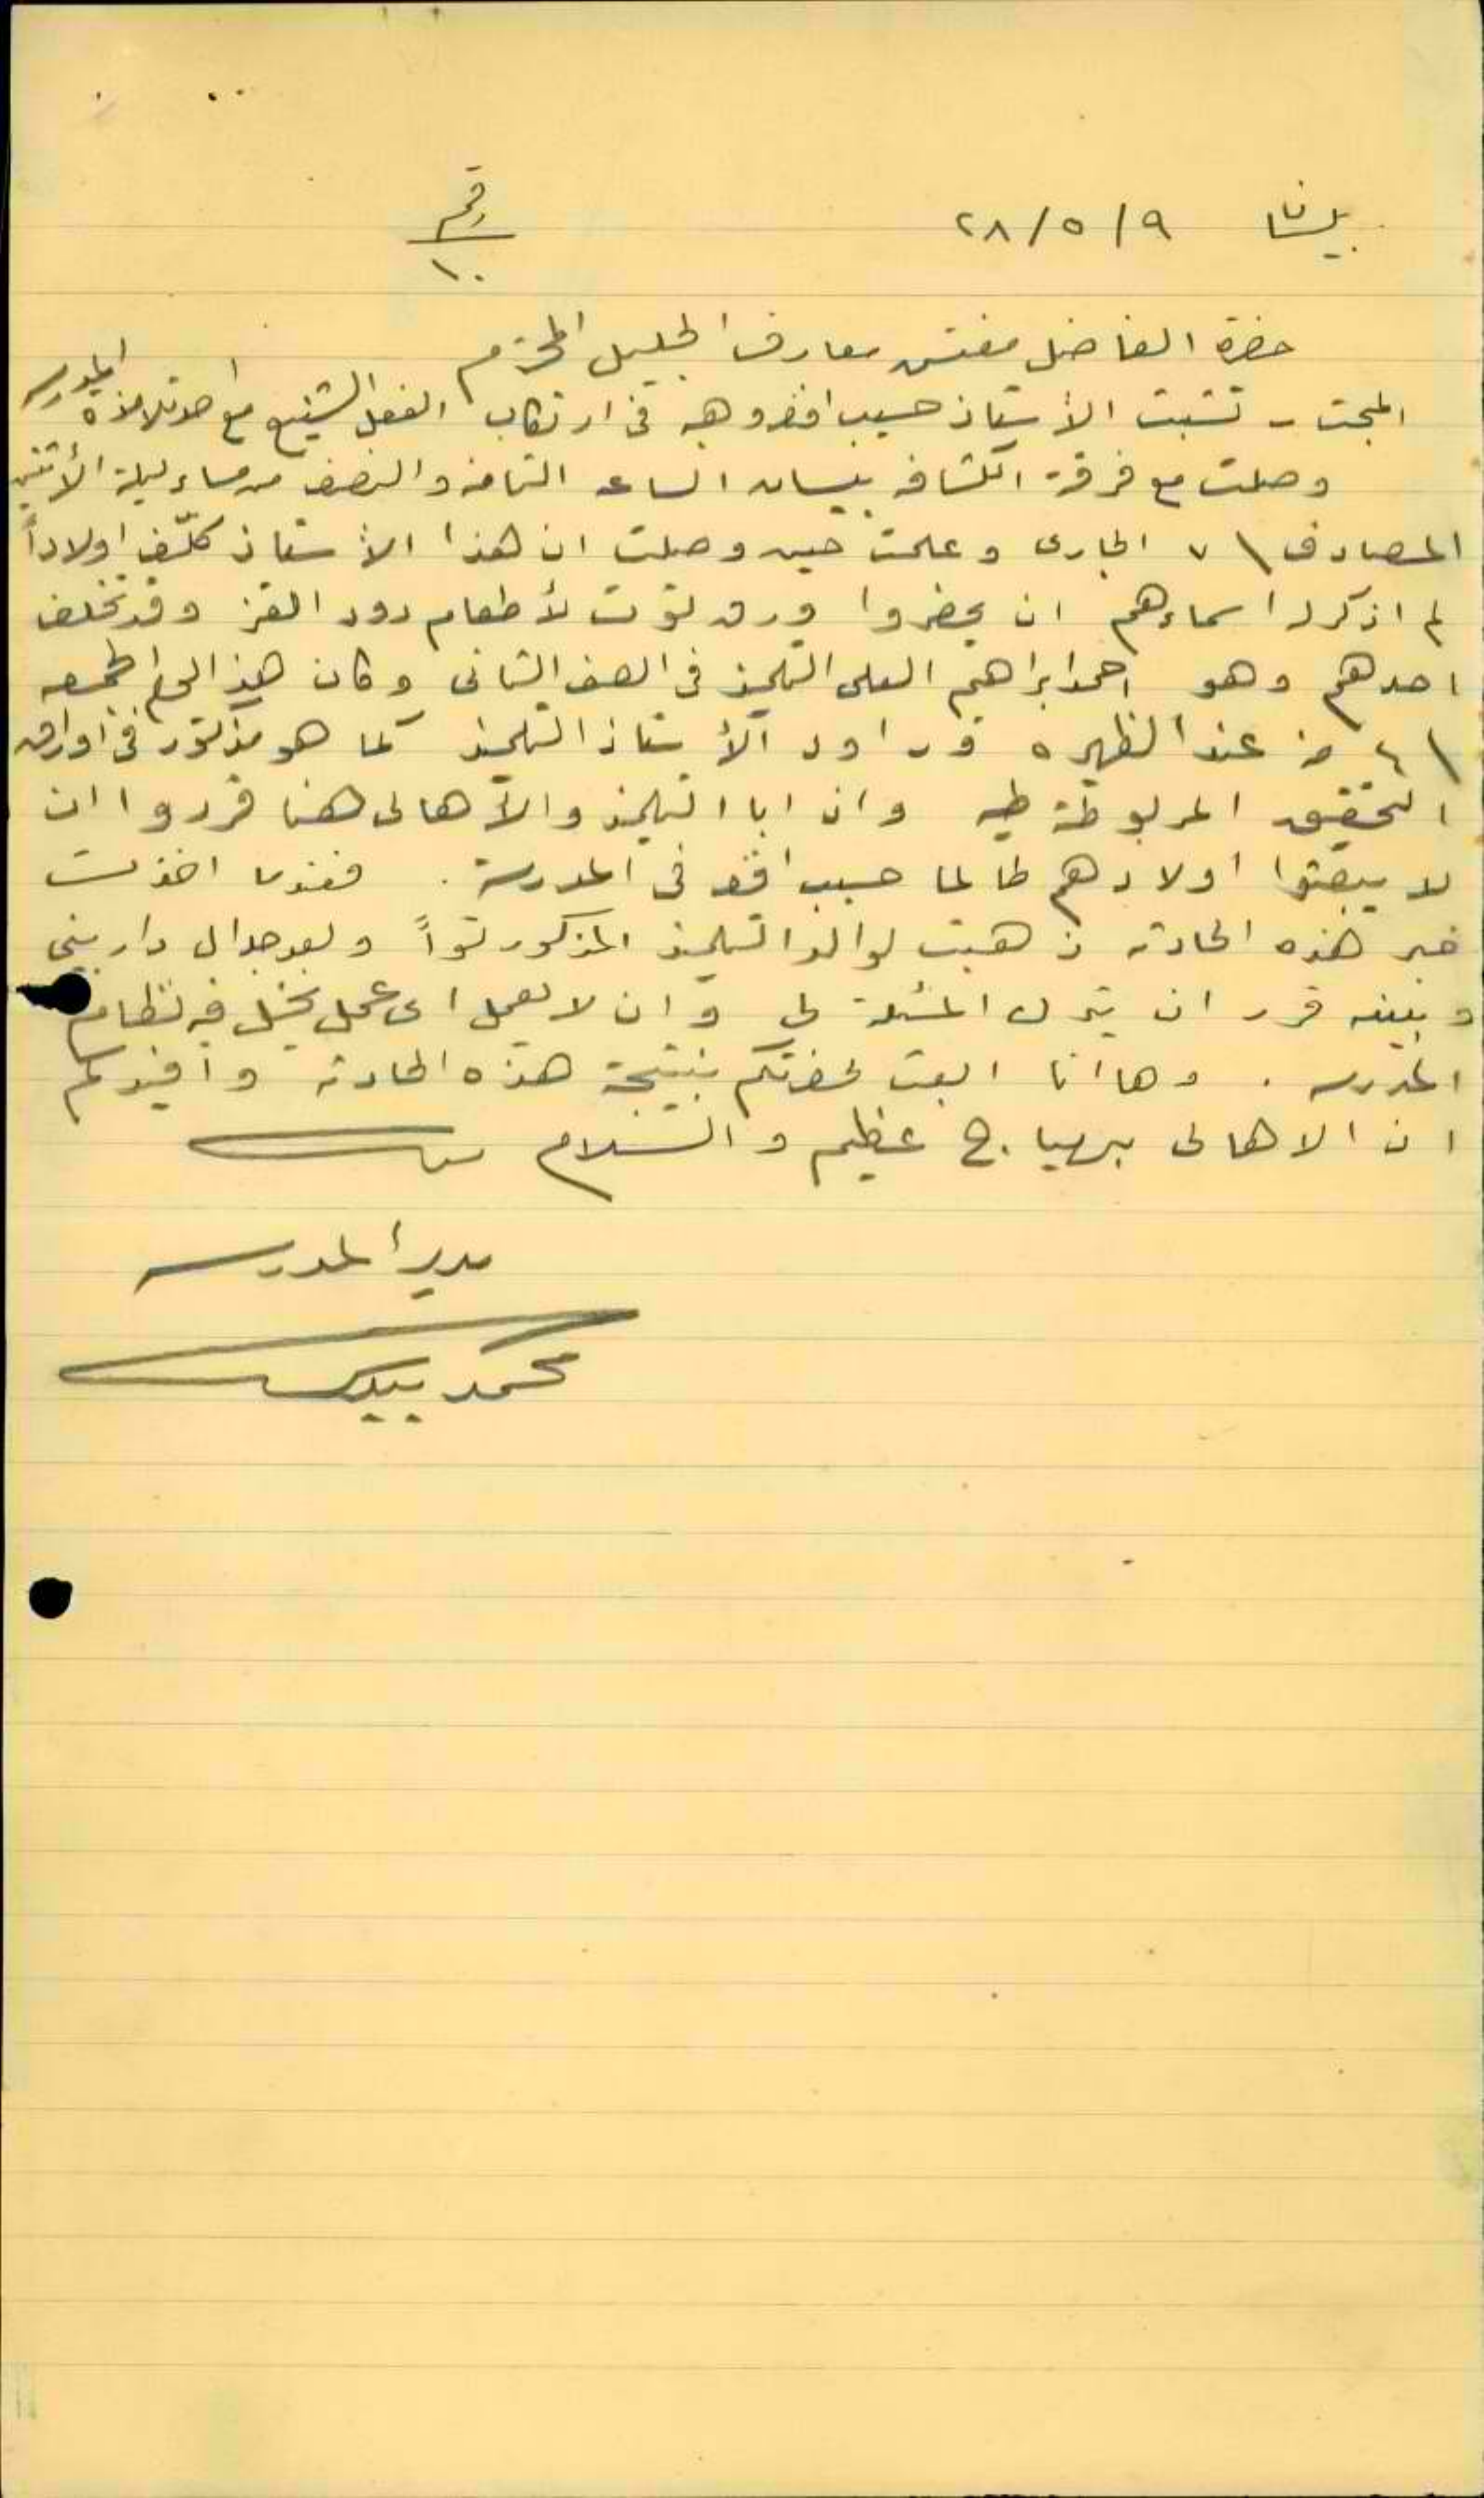 بيسان ٢٨/٥/٩
رقم
١٠
حضرة الفاضل مفتش معارف الجليل المحترم
المبحث - تشبث الأستاذ حسيب افندي وهبه في ارتكاب الفعل الشنيع مع احد تلامذة المدرسه
وصلت مع فرقة الكشافه بيسان الساعه الثامنه والنصف من مساء ليلة الأثنين
المصادف \ ٧ الجارى وعلمت حين وصلت ان هذا الأستاذ كلّف اولاداً
لم اذكر اسماءهم ان يحضروا ورق توت لأطعام دود القز وقد تخلف
احدهم وهو احمد ابراهيم العلى التلميذ في الصف الثانى وكان هذا اليوم الجمعه
\ ٤ منه عند الظهيره فراود الأستاذ التلميذ كما هو مذكور في اوراق
التحقيق المربوطة طيه وان ابا التلميذ والأهالى هنا قرروا ان
لا يبعثوا اولادهم طالما حسيب افندي في المدرسة . فعندما اخذت
خبر هذه الحادثه ذهبت لوالد التلميذ المذكور تواً وبعد جدال دار بيني
وبينه قرر ان يترك المسئلة لى وان لا يعمل اى عمل يخل في نظام
المدرسه . وها انا ابعث لحضرتكم بنتيجة هذه الحادثه وافيدكم
ان الاهالى بهياج عظيم والسلام
مدير المدرسه
محمد